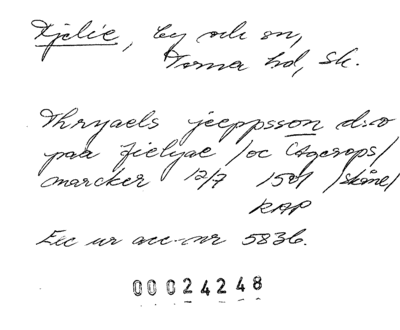 Fjelie, by och sn,
Torna hd, Sk.
Thryaels jeeppsson d:o
paa fielyae /oc Agerops/
marcker 12/7 1501 /Skåne/
RAP
Exc ur acc-nr 5836.
00024248